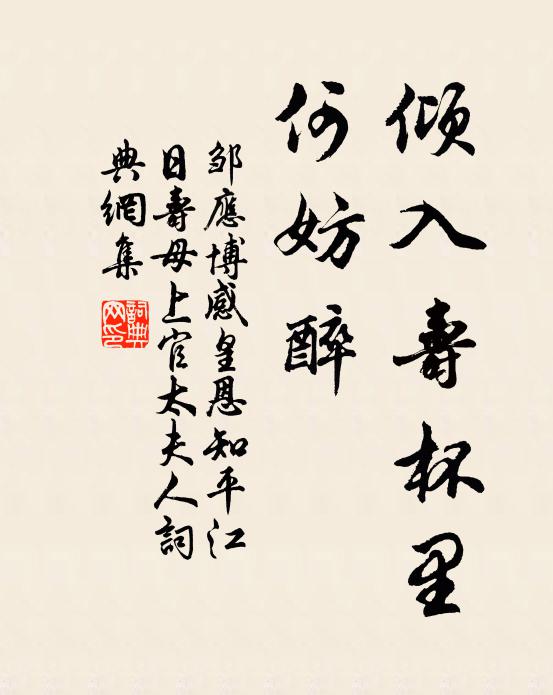 倾入壽杯里
何妨醉
邹應博感皇恩知平江
日壽母上官太夫人詞
典網集
詞典网印